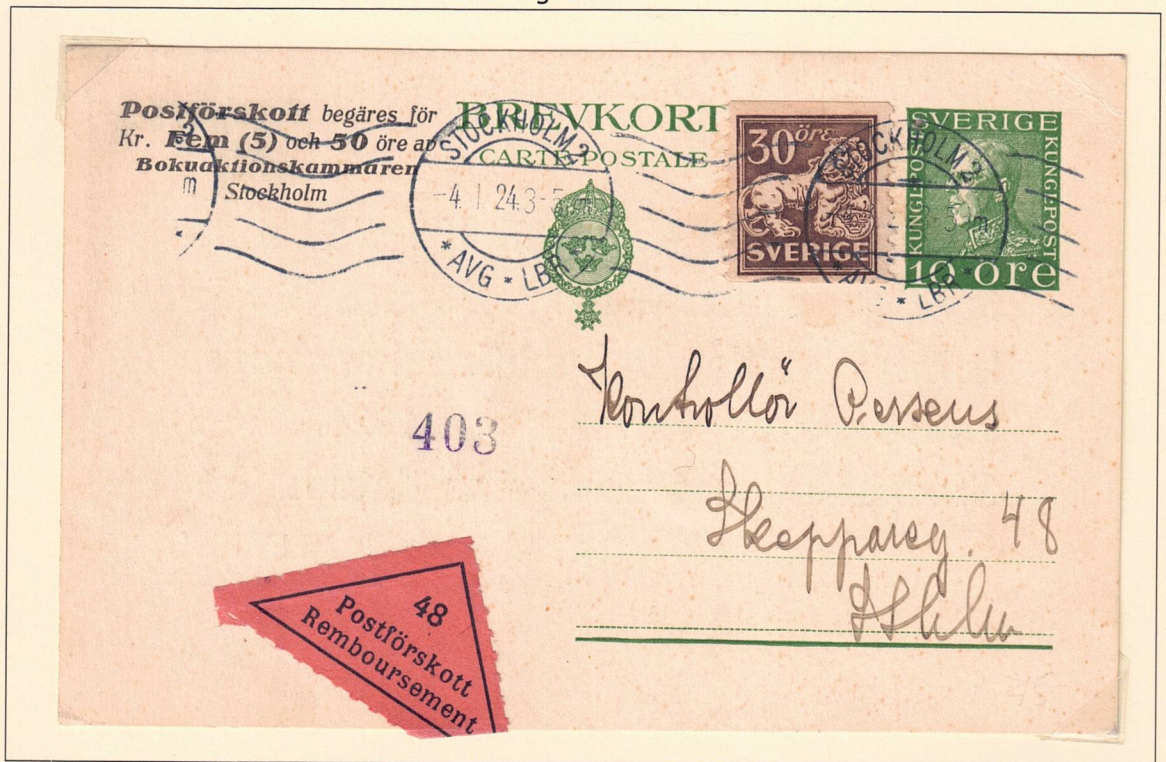 Postförskott begäres för
Kr. Fem (5) och 50 öre av
Bokuaktionskammaren
Stockholm
BREVKORT
CARTE POSTALE
STOCKHOLM 2
-4. 1. 24. 3-5
* AVG * LBR
30 öre
SVERIGE
STOCKHOLM 2
* AVG * LBR
SVERIGE
KUNGL. POST
KUNGL. POST
10 öre
m
403
Kontrollör Perssens
Skeppareg. 48
Sthlm
48
Postförskott
Remboursement